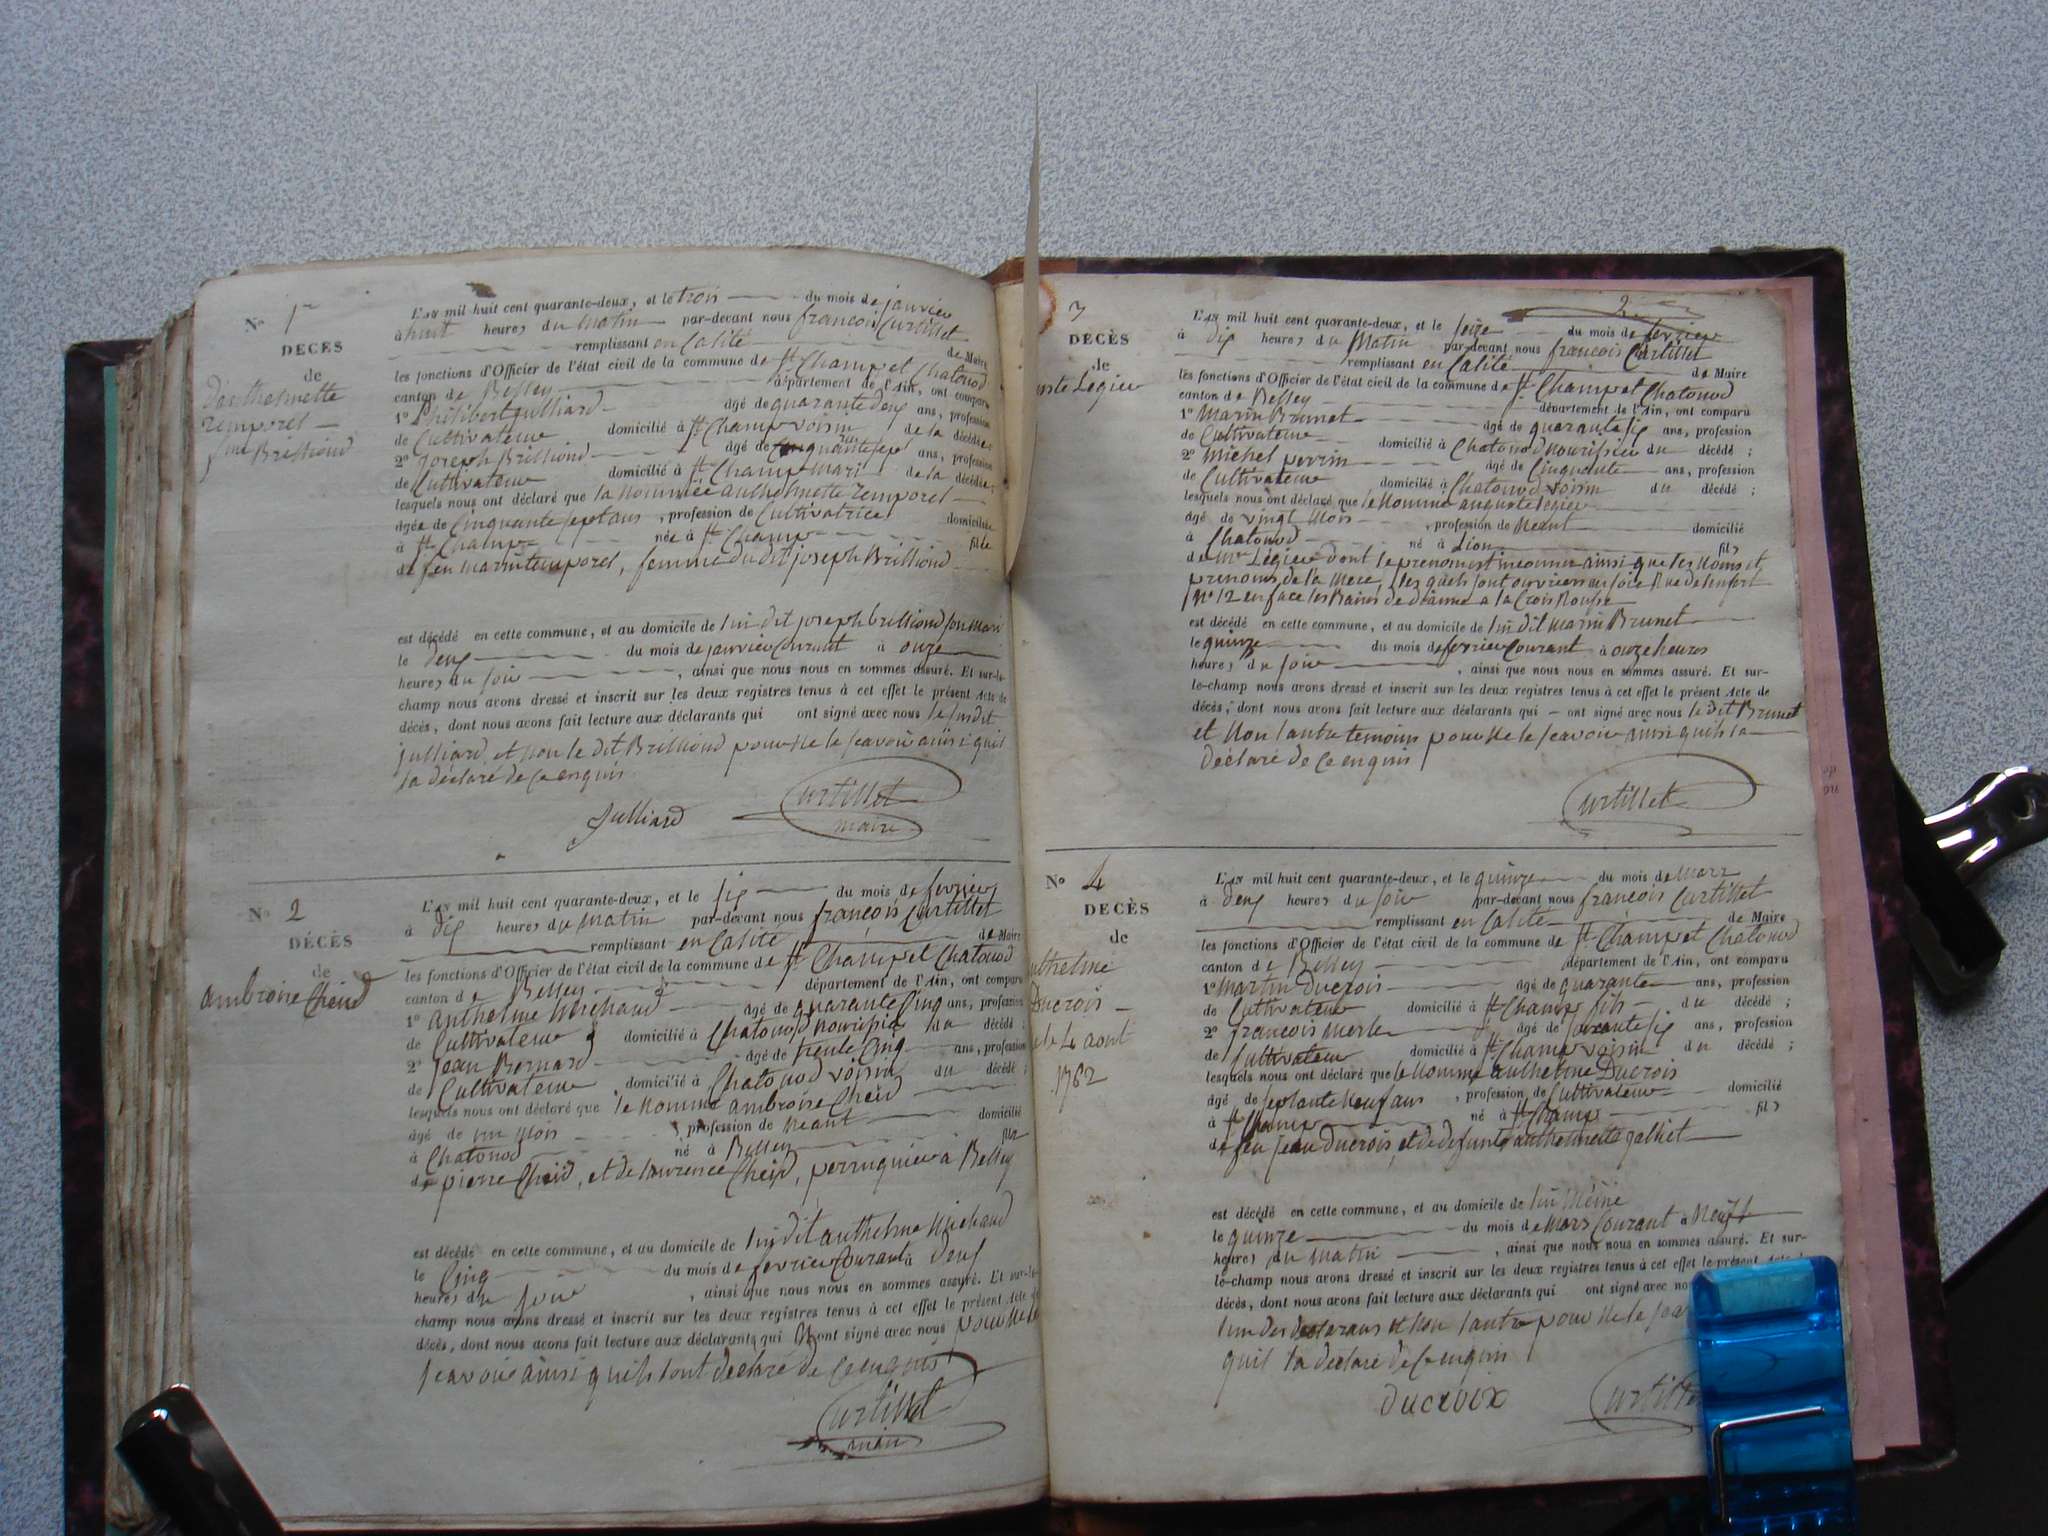 No 1er
DECÈS
de
D'anthelmette
Temporel
fme Brilliond
L'AN mil huit cent quarante-deux, et le trois du mois de janvier
à huit heures du Matin par-devant nous francois Curtillet
remplissant en Calité de Maire
les fonctions d'Officier de l'état civil de la commune de St Champ et Chatonod
canton de Belley département de l'Ain, ont comparu
1o Philibert Julliard âgé de quarante deux ans, profession
de Cultivateur domicilié à St Champ voisin de la décédée;
2o Joseph Brilliond âgé de Cinquante sept ans, profession
de Cultivateur domicilié à St Champ Mari de la décédée;
lesquels nous ont déclaré que la Nommée anthelmette Temporel
âgée de Cinquante sept ans, profession de Cultivatrice domiciliée
à St Champ née à St Champ fille
de feu marin temporel, femme du dit joseph Brilliond
est décédé en cette commune, et au domicile de lui dit joseph brilliond son Mari
le deux du mois de janvier Courant à onze
heures du soir, ainsi que nous nous en sommes assuré. Et sur-le-
champ nous avons dressé et inscrit sur les deux registres tenus à cet effet le présent Acte de
décès, dont nous avons fait lecture aux déclarants qui ont signé avec nous le susdit
julliard et Non le dit Brilliond pour Ne le scavoir ainsi quil
la déclaré de Ce enquis
Julliard Curtillet
maire
No 2
DÉCÈS
de
ambroise Cheid
L'AN mil huit cent quarante-deux, et le six du mois de fevrier
à dix heures du Matin par-devant nous françois Curtillet
remplissant en Calité de Maire
les fonctions d'Officier de l'état civil de la commune de St Champ et Chatonod
canton de Belley département de l'Ain, ont comparu
1o anthelme Michaud âgé de quarante Cinq ans, profession
de Cultivateur domicilié à Chatonod Nourissier du décédé;
2o Jean Bernard âgé de trente Cinq ans, profession
de Cultivateur domicilié à Chatonod voisin du décédé;
lesquels nous ont déclaré que le Nommé ambroise Cheid
âgé de un Mois, profession de Neant domicilié
à Chatonod né à Belley fils
de pierre Cheid, et de laurence Cheid, perruquier à Belley
est décédé en cette commune, et au domicile de lui dit anthelme Michaud
le Cinq du mois de fevrier Courant à deux
heures du soir, ainsi que nous nous en sommes assuré. Et sur-le-
champ nous avons dressé et inscrit sur les deux registres tenus à cet effet le présent Acte de
décès, dont nous avons fait lecture aux déclarants qui Nont signé avec nous pour Ne le
scavoir ainsi quils lont déclaré de Ce enquis
Curtillet
maire
2
3
DECÈS
de
Légier
L'AN mil huit cent quarante-deux, et le seize du mois de fevrier
à dix heures du Matin par-devant nous françois Curtillet
remplissant en Calité de Maire
les fonctions d'Officier de l'état civil de la commune de St Champ et Chatonod
canton de Belley département de l'Ain, ont comparu
1o Marin Brunet âgé de quarante six ans, profession
de Cultivateur domicilié à Chatonod Nourissier du décédé;
2o Michel perrin âgé de Cinquante ans, profession
de Cultivateur domicilié à Chatonod voisin du décédé;
lesquels nous ont déclaré que le Nommé auguste Légier
âgé de vingt Mois, profession de Neant domicilié
à Chatonod né à Lion fils
de Mr Légier dont le prenom est inconnu ainsi que les Noms et
prenoms de la Mere, les quels sont ouvriers en soie Rue de lenfert
No 12 en face les Bains de dianne a la Croix Rousse
est décédé en cette commune, et au domicile de lui dit marin Brunet
le quinze du mois de fevrier Courant à onze heures
heures du soir, ainsi que nous nous en sommes assuré. Et sur-
le-champ nous avons dressé et inscrit sur les deux registres tenus à cet effet le présent Acte de
décès, dont nous avons fait lecture aux déclarants qui ont signé avec nous le dit Brunet
et Non lautre temoins pour Ne le scavoir ainsi quils la
déclaré de Ce enquis
Curtillet
No 4
DECÈS
de
anthelme
Ducrois
le 4 aout
1762
L'AN mil huit cent quarante-deux, et le quinze du mois de Mars
à deux heures du soir par-devant nous francois Curtillet
remplissant en Calité de Maire
les fonctions d'Officier de l'état civil de la commune de St Champ et Chatonod
canton de Belley département de l'Ain, ont comparu
1o Martin Ducrois âgé de quarante ans, profession
de Cultivateur domicilié à St Champ fils du décédé;
2o francois Merle âgé de soixante six ans, profession
de Cultivateur domicilié à St Champ voisin du décédé;
lesquels nous ont déclaré que le Nommé anthelme Ducrois
âgé de septante Neuf ans, profession de Cultivateur domicilié
à St Champ né à St Champ fils
de feu jean Ducrois, et de defunte anthelmette galliet
est décédé en cette commune, et au domicile de lui Même
le quinze du mois de Mars Courant à Neuf
heures du Matin, ainsi que nous nous en sommes assuré. Et sur-
le-champ nous avons dressé et inscrit sur les deux registres tenus à cet effet le présent Acte
décès, dont nous avons fait lecture aux déclarants qui ont signé avec
lun des declarans et Non lautre pour Ne le
quil la declaré de Ce enquis
ducroix Curtillet